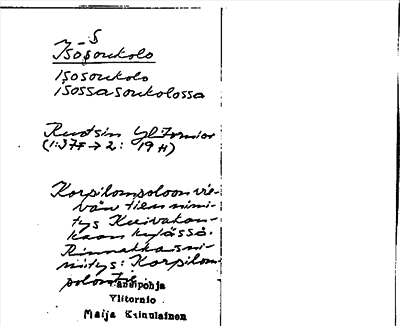 s
Isosoukolo
Isosoukolo
isossasoukolossa
Ruotsin Ylitornio
(1:37F → 2: 19H)
Korpilompoloon vie-
vän tien nimi-
tys Kuivakan-
kaan kylässä.
Rinnakkaisni-
mitys: Korpilom-
polontie
Ylitornio
Maija